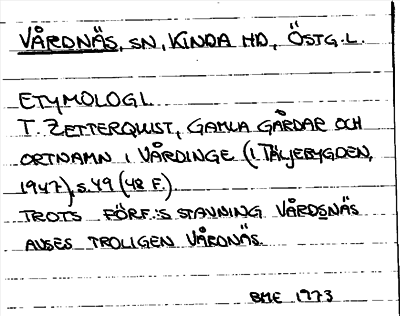 VÅRDNÄS, SN, KINDA HD, ÖSTG.L.
ETYMOLOGI.
T. ZETTERQUIST, GAMLA GÅRDAR OCH
ORTNAMN I VÅRDINGE (I TÄLJEBYGDEN,
1947), S.49 (48 F.)
TROTS FÖRF:S STAVNING VÅRDSNÄS
AVSES TROLIGEN VÅRDNÄS.
BME 1973